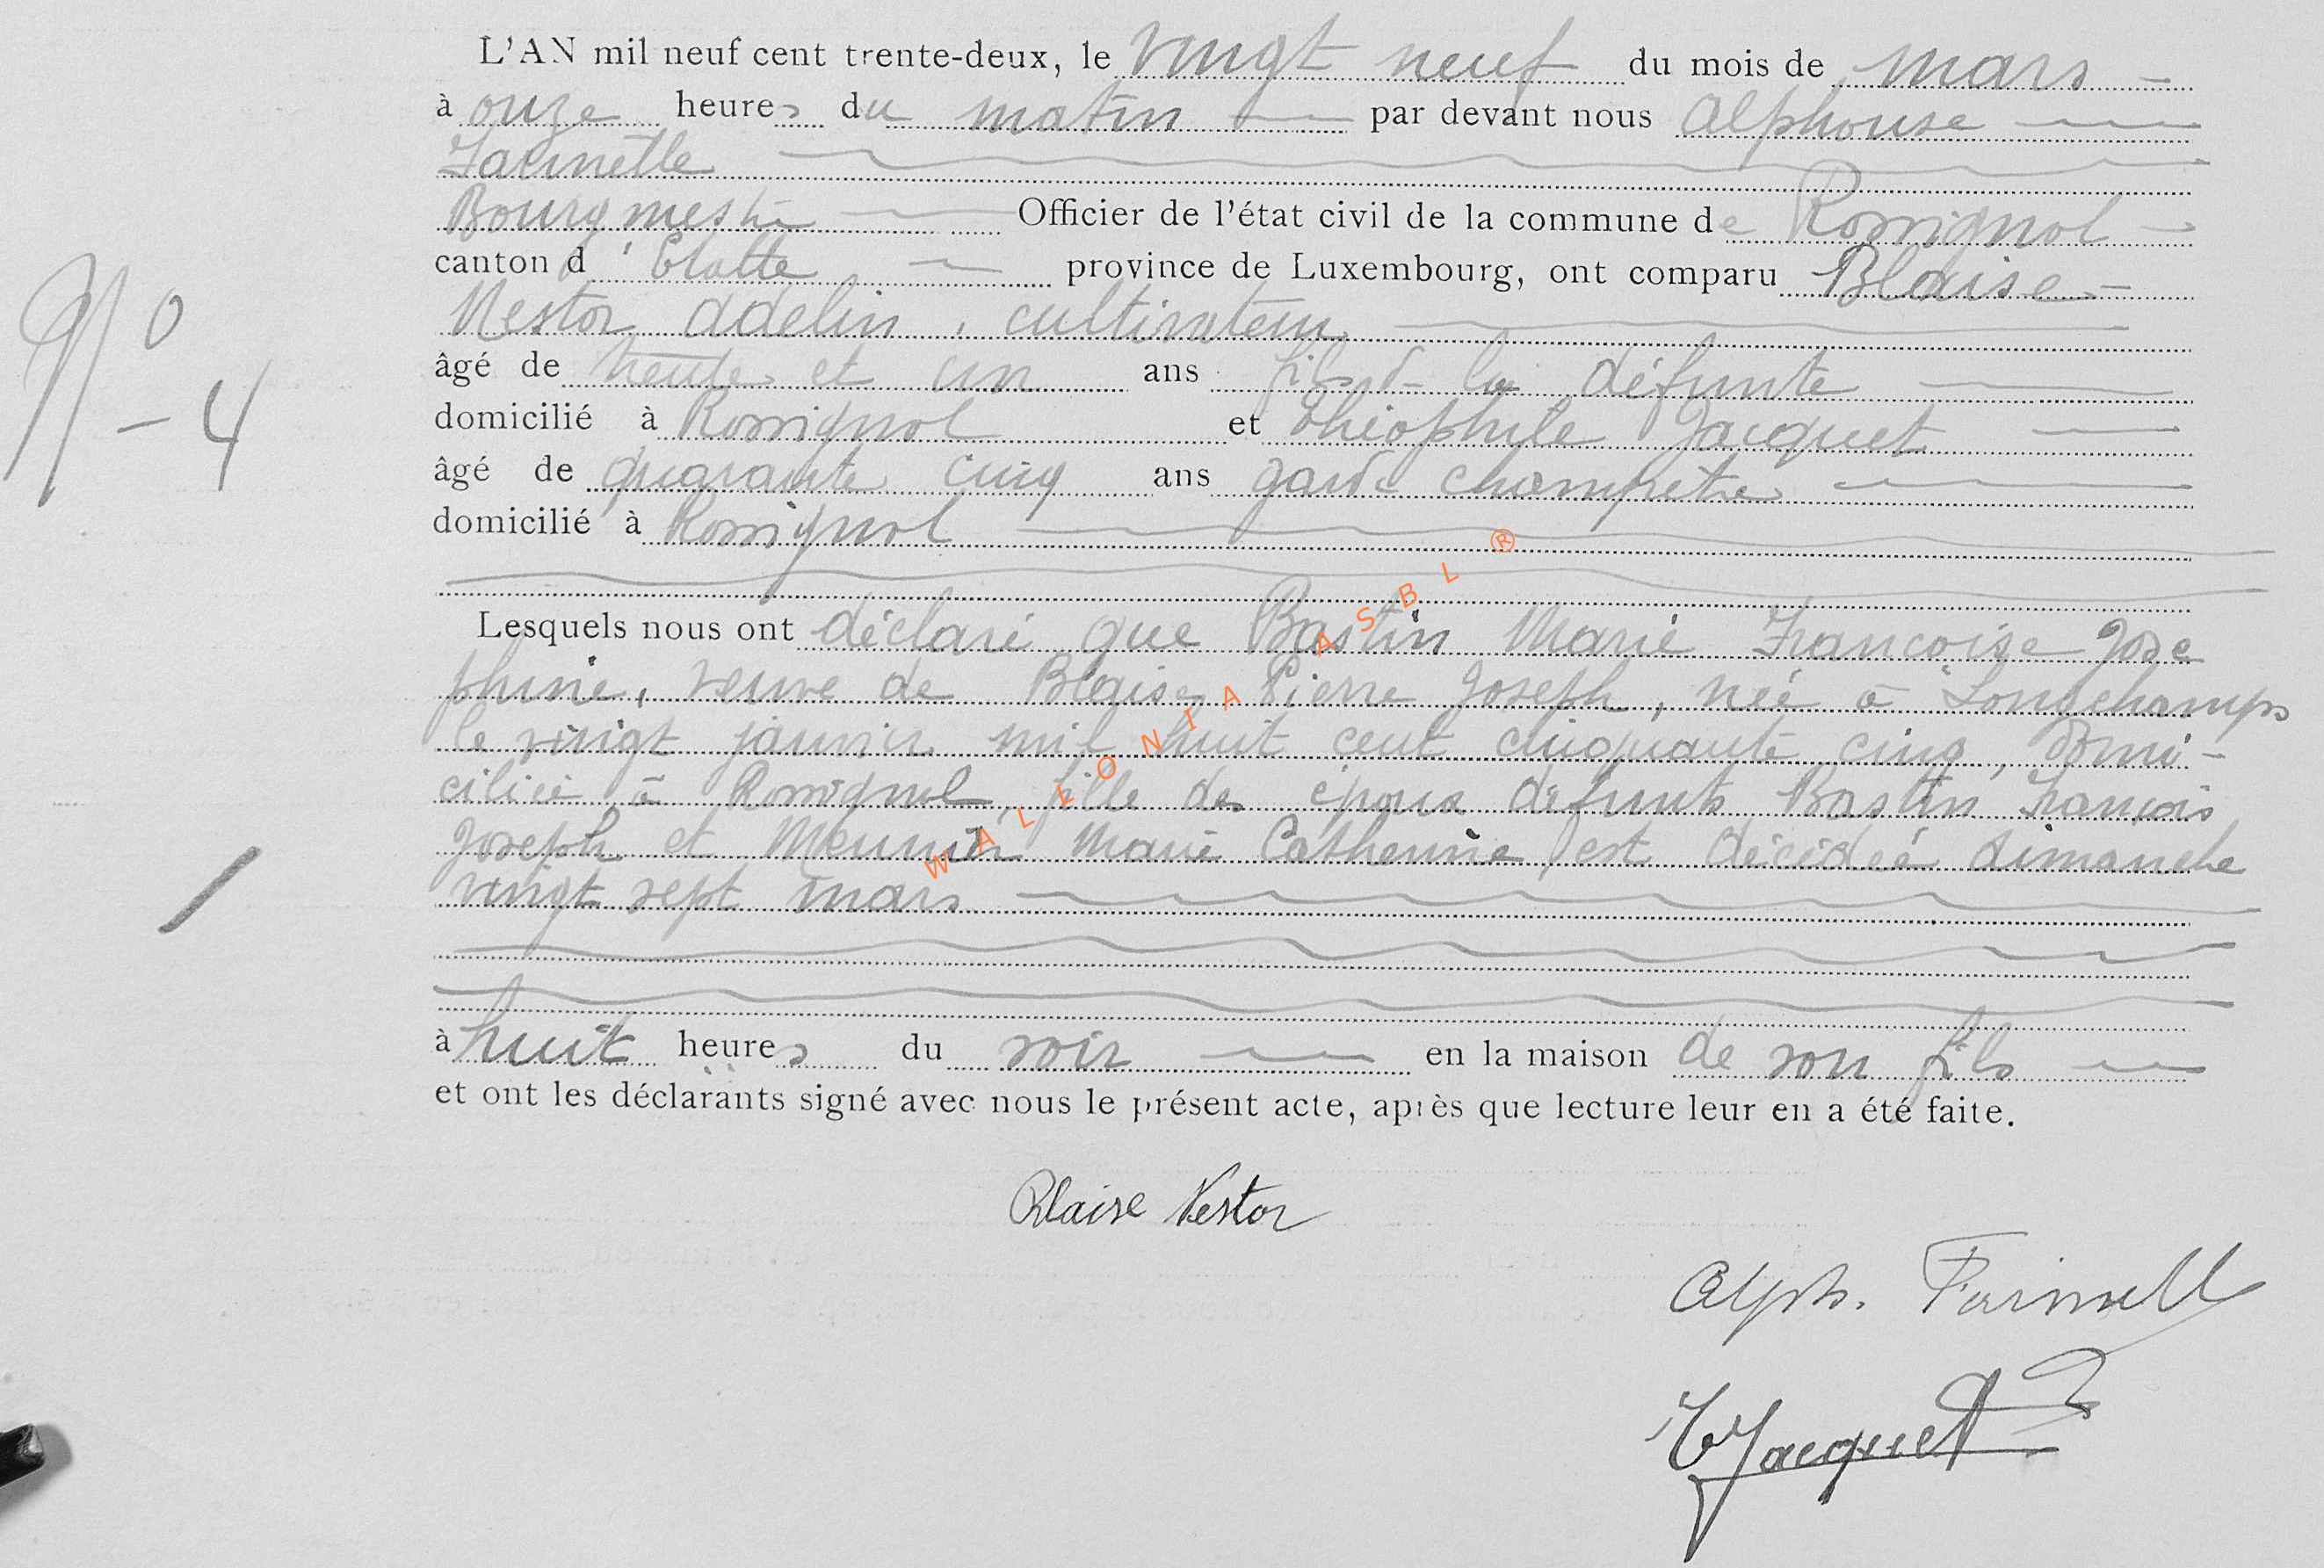 L'AN mil neuf cent trente-deux, le vingt neuf du mois de mars
à onze heures du matin par devant nous Alphonse
Farinelle
Bourgmestre Officier de l'état civil de la commune de Rossignol
canton d'Etalle province de Luxembourg, ont comparu Blaise
Nestor Adelin, cultivateur
âgé de trente et un ans fils de la défunte
domicilié à Rossignol et Théophile Jacquet
âgé de quarante cinq ans garde champêtre
domicilié à Rossignol
N° 4
Lesquels nous ont déclaré que Bastin Marie Françoise Jose
phine, veuve de Blaise Pierre Joseph, née à Longchamps
le vingt janvier mil huit cent cinquante cinq, domi-
ciliée à Rossignol, fille des époux défunts Bastin François
Joseph et Meunier Marie Catherine, est décédée dimanche
vingt sept mars
à huit heures du soir en la maison de son fils
et ont les déclarants signé avec nous le présent acte, après que lecture leur en a été faite.
Blaise Nestor
Alph. Farinelle
T Jacquet
WALLONIA ASBL ®